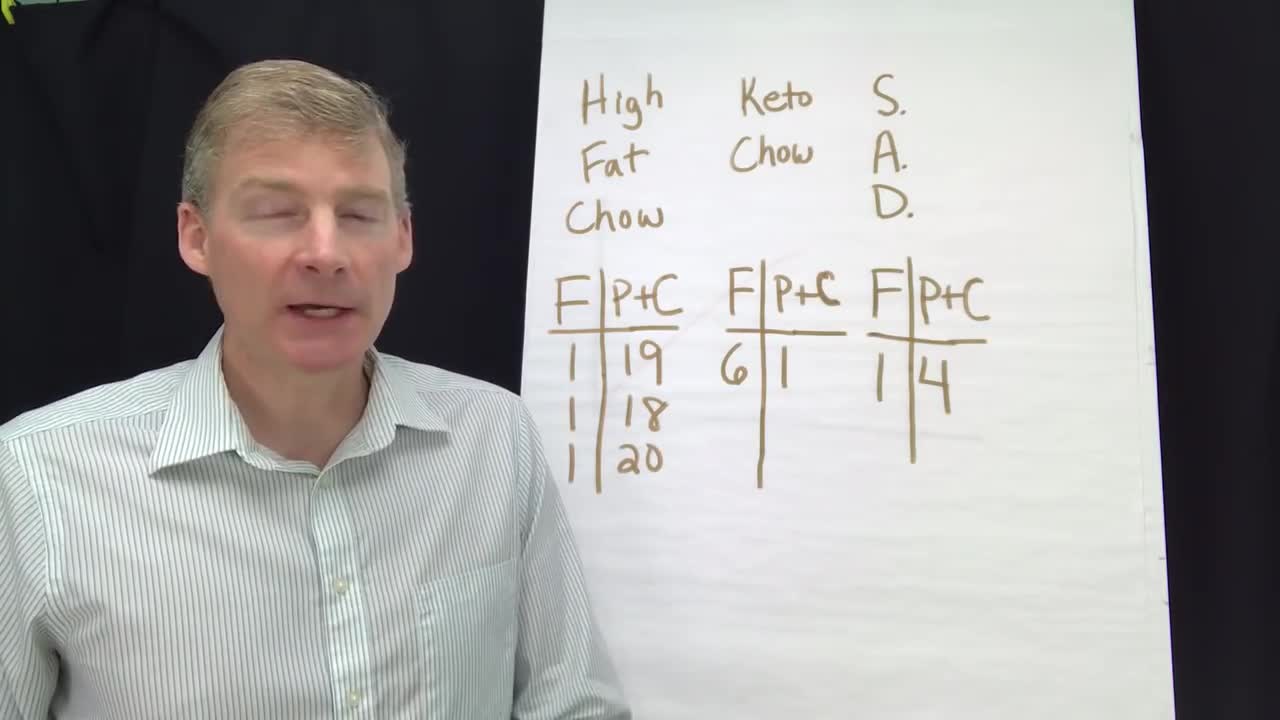 High Keto S.
Fat Chow A.
Chow D.
F P+C F P+C F P+C
1 19 6 1 1 4
1 18
1 20